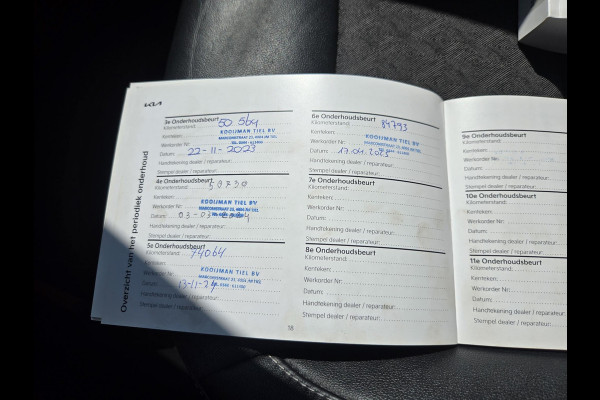 KIA
Overzicht van het periodiek onderhoud
3e Onderhoudsbeurt
Kilometerstand: 50 564
KOOIJMAN TIEL BV
Kenteken:
Werkorder Nr:
Datum: 22-11-2023
Handtekening dealer / reparateur:
Stempel dealer / reparateur:
4e Onderhoudsbeurt
Kilometerstand: 59730
Kenteken:
KOOIJMAN TIEL BV
Werkorder Nr:
Datum: 03-03-
Handtekening dealer / reparateur:
Stempel dealer / reparateur:
5e Onderhoudsbeurt
Kilometerstand: 74064
Kenteken:
KOOIJMAN TIEL BV
Werkorder Nr:
Datum: 13-11-24
Handtekening dealer / reparateur:
Stempel dealer / reparateur:
18
6e Onderhoudsbeurt
Kilometerstand: 84793
Kenteken:
KOOIJMAN TIEL BV
Werkorder Nr:
Datum:
Handtekening dealer / reparateur:
Stempel dealer / reparateur:
7e Onderhoudsbeurt
Kilometerstand:
Kenteken:
Werkorder Nr:
Datum:
Handtekening dealer / reparateur:
Stempel dealer / reparateur:
8e Onderhoudsbeurt
Kilometerstand:
Kenteken:
Werkorder Nr:
Datum:
Handtekening dealer / reparateur:
Stempel dealer / reparateur:
9e Onderhoudsbeurt
Kilometerstand:
Kenteken:
Werkorder Nr:
Datum:
Handtekening dealer
Stempel dealer / reparateur:
10e Onderhoudsbeurt
Kilometerstand:
Kenteken:
Werkorder Nr:
Datum:
Handtekening dealer
Stempel dealer / reparateur:
11e Onderhoudsbeurt
Kilometerstand:
Kenteken:
Werkorder Nr:
Datum:
Handtekening dealer
Stempel dealer / reparateur: